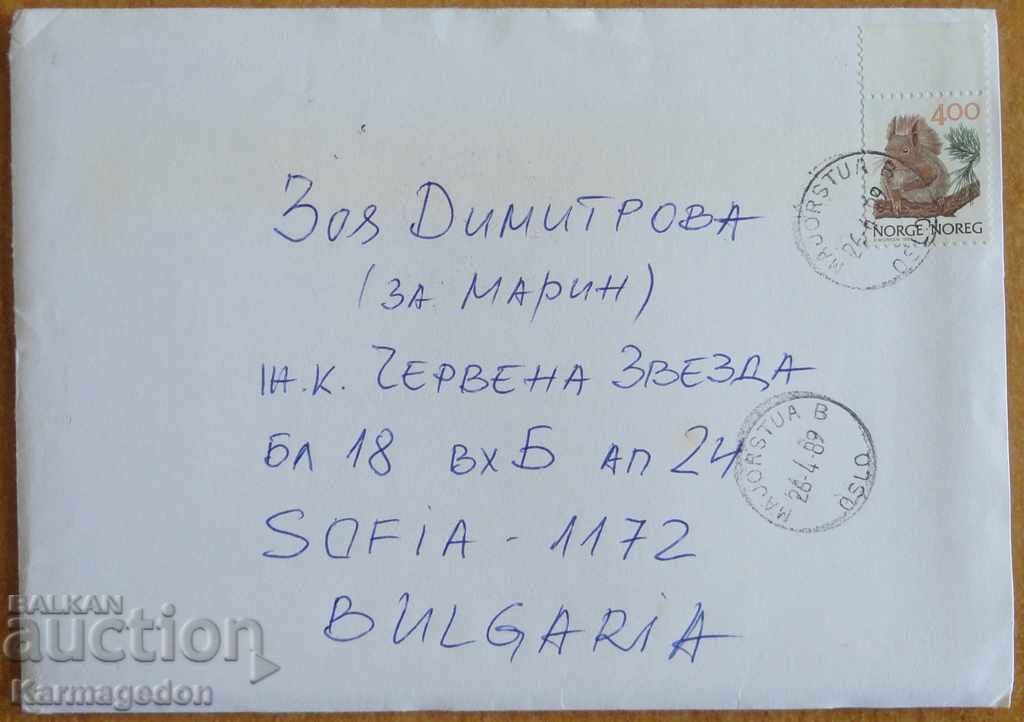 400
NORGE·NOREG
MAJORSTUA B
26-4-89
OSLO
Зоя Димитрова
(за Марин)
ж.к. Червена Звезда
бл 18 вх Б ап 24
SOFIA - 1172
BULGARIA
MAJORSTUA B
26-4-89
OSLO
BALKAN
auction
Karmagedon